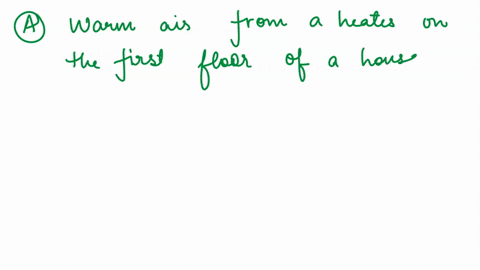 Ⓐ Warm air from a heater on
the first floor of a house